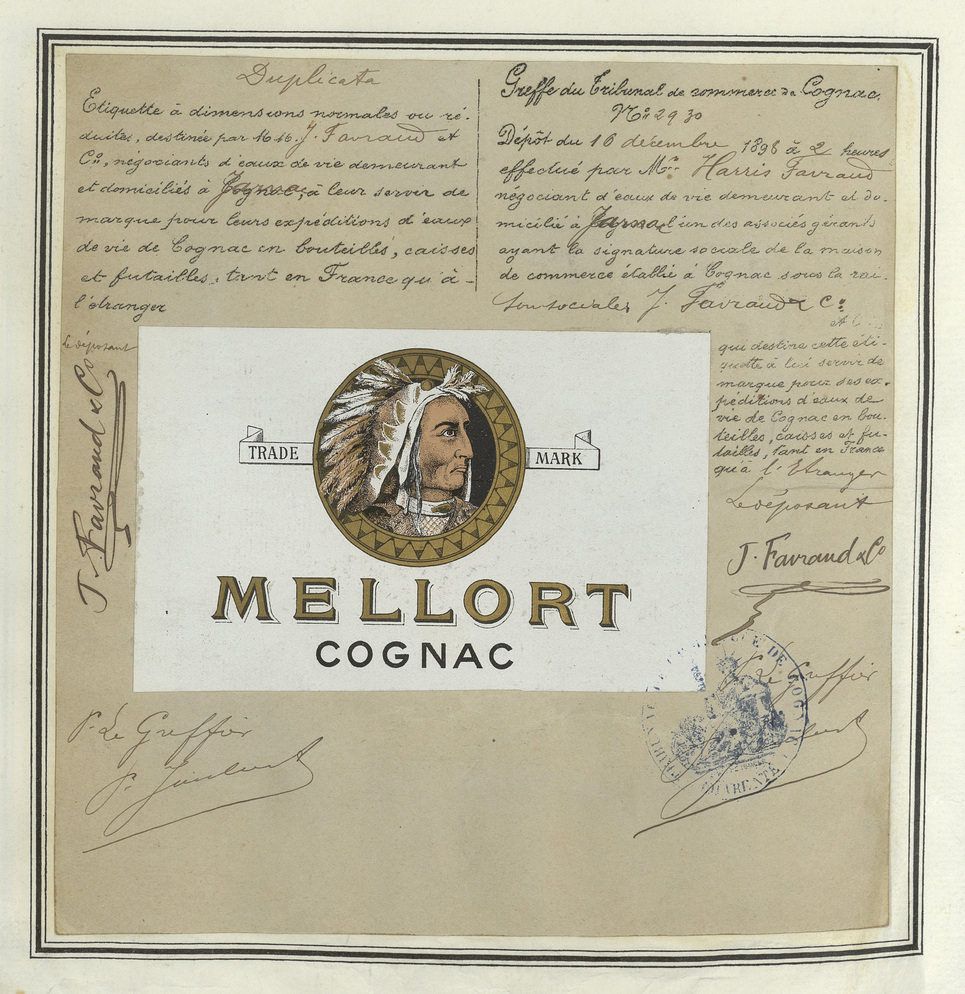 Duplicata
Etiquette à dimensions normales ou ré-
duites, destinée par M.M. J. Favraud et
Cie, négociants d'eaux de vie demeurant
et domiciliés à Jarnac, à leur servir de
marque pour leurs expéditions d'eaux
de vie de Cognac en bouteilles, caisses
et futailles, tant en France qu'à
l'étranger
Le déposant
J. Favraud & Co
Greffe du Tribunal de commerce de Cognac.
No 2930
Dépôt du 16 décembre 1898 à 2 heures
effectué par Mr Harris Favraud
négociant d'eaux de vie demeurant et do-
micilié à Jarnac l'un des associés gérants
ayant la signature sociale de la maison
de commerce établie à Cognac sous la rai-
son sociale J. Favraud & Cie
qui destine cette éti-
quette à lui servir de
marque pour ses ex-
péditions d'eaux de
vie de Cognac en bou-
teilles, caisses et fu-
tailles, tant en France
qu'à l'Etranger
Le déposant
J. Favraud & Co
TRADE MARK
MELLORT
COGNAC
P. Le Greffier
Le Greffier
CHARENTE